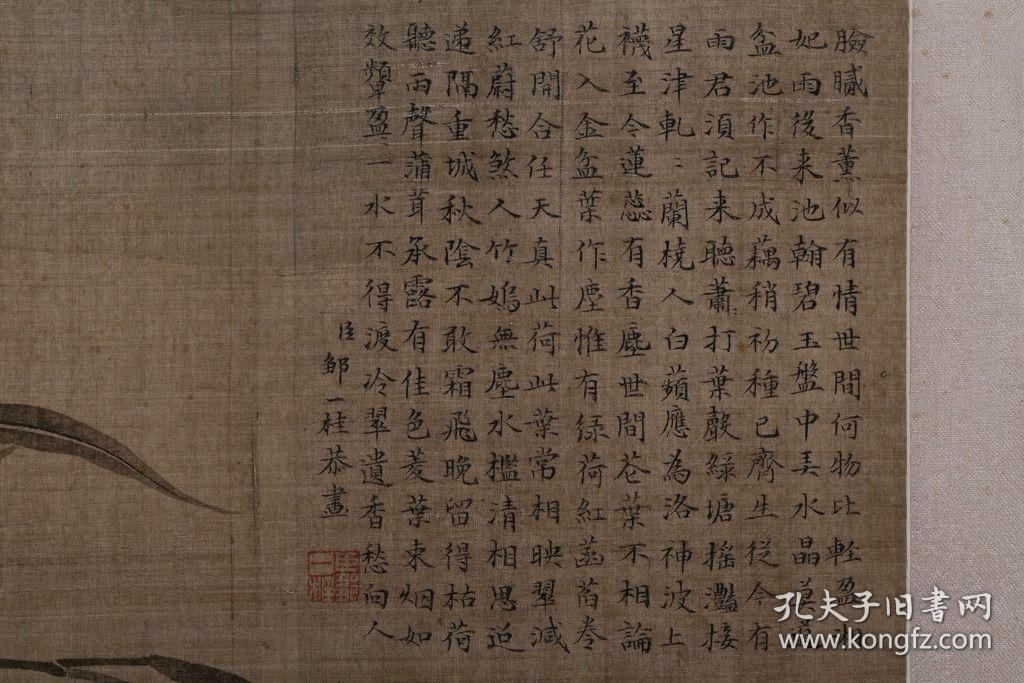 臉膩香薰似有情世間何物比軽盈
妃雨後来池翰碧玉盤中美水晶莫
盆池作不成藕稍初種已齊生從今有
雨君須記来聽蕭=打葉聲綠塘搖灩接
星津軋=蘭橈人白蘋應為洛神波上
襪至今蓮蕊有香塵世間花葉不相論
花入金盆葉作塵惟有綠荷紅菡萏卷
舒開合任天真此荷此葉常相映翠減
紅蔚愁煞人竹塢無塵水檻清相思迢
递隔重城秋陰不敢霜飛晚留得枯荷
聽雨聲蒲茸承露有佳色茭葉束烟如
效顰盈=一水不得渡冷翠遺香愁向人
臣鄒一桂恭畫
孔夫子旧書网
www.kongfz.com